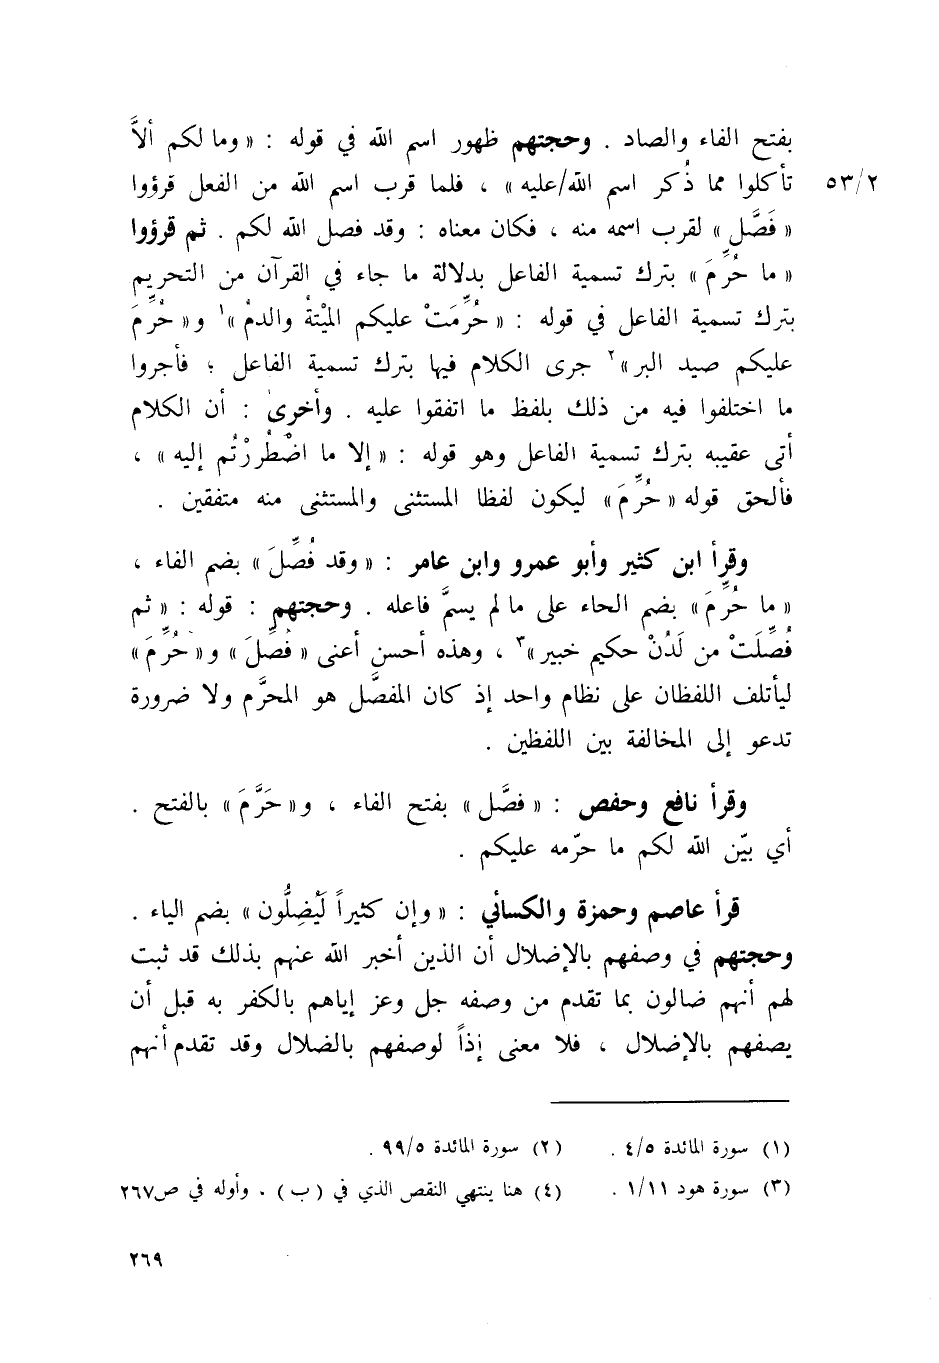 بفتح الفاء والصاد . وحجتهم ظهور اسم الله في قوله : « وما لكم ألاَّ
٥٣/٢ تأكلوا مما ذُكر اسم الله/عليه » ، فلما قرب اسم الله من الفعل قرؤوا
« فَصَّل » لقرب اسمه منه ، فكان معناه : وقد فصل الله لكم . ثم قرؤوا
« ما حُرِّمَ » بترك تسمية الفاعل بدلالة ما جاء في القرآن من التحريم
بترك تسمية الفاعل في قوله : « حُرِّمَتْ عليكم الميْتةُ والدمُ »١ و« حُرِّمَ
عليكم صيد البر »٢ جرى الكلام فيها بترك تسمية الفاعل ؛ فأجروا
ما اختلفوا فيه من ذلك بلفظ ما اتفقوا عليه . وأخرى : أن الكلام
أتى عقيبه بترك تسمية الفاعل وهو قوله : « إلا ما اضْطُررْتُم إليه » ،
فألحق قوله « حُرِّمَ » ليكون لفظا المستثنى والمستثنى منه متفقين .
وقرأ ابن كثير وأبو عمرو وابن عامر : « وقد فُصِّلَ » بضم الفاء ،
« ما حُرِّمَ » بضم الحاء على ما لم يسمَّ فاعله . وحجتهم : قوله : « ثم
فُصِّلَتْ من لَدُنْ حكيم خبير »٣ ، وهذه أحسن أعنى « فُصِّلَ » و« حُرِّمَ »
ليأتلف اللفظان على نظام واحد إذ كان المفصَّل هو المحرَّم ولا ضرورة
تدعو إلى المخالفة بين اللفظين .
وقرأ نافع وحفص : « فصَّل » بفتح الفاء ، و« حَرَّمَ » بالفتح .
أي بيّن الله لكم ما حرّمه عليكم .
قرأ عاصم وحمزة والكسائي : « وإن كثيراً لَيُضِلُّون » بضم الياء .
وحجتهم في وصفهم بالإضلال أن الذين أخبر الله عنهم بذلك قد ثبت
لهم أنهم ضالون بما تقدم من وصفه جل وعز إياهم بالكفر به قبل أن
يصفهم بالإضلال ، فلا معنى إذاً لوصفهم بالضلال وقد تقدم أنهم
(١) سورة المائدة ٤/٥ . (٢) سورة المائدة ٩٩/٥ .
(٣) سورة هود ١/١١ . (٤) هنا ينتهي النقص الذي في ( ب ) . وأوله في ص٢٦٧
٢٦٩